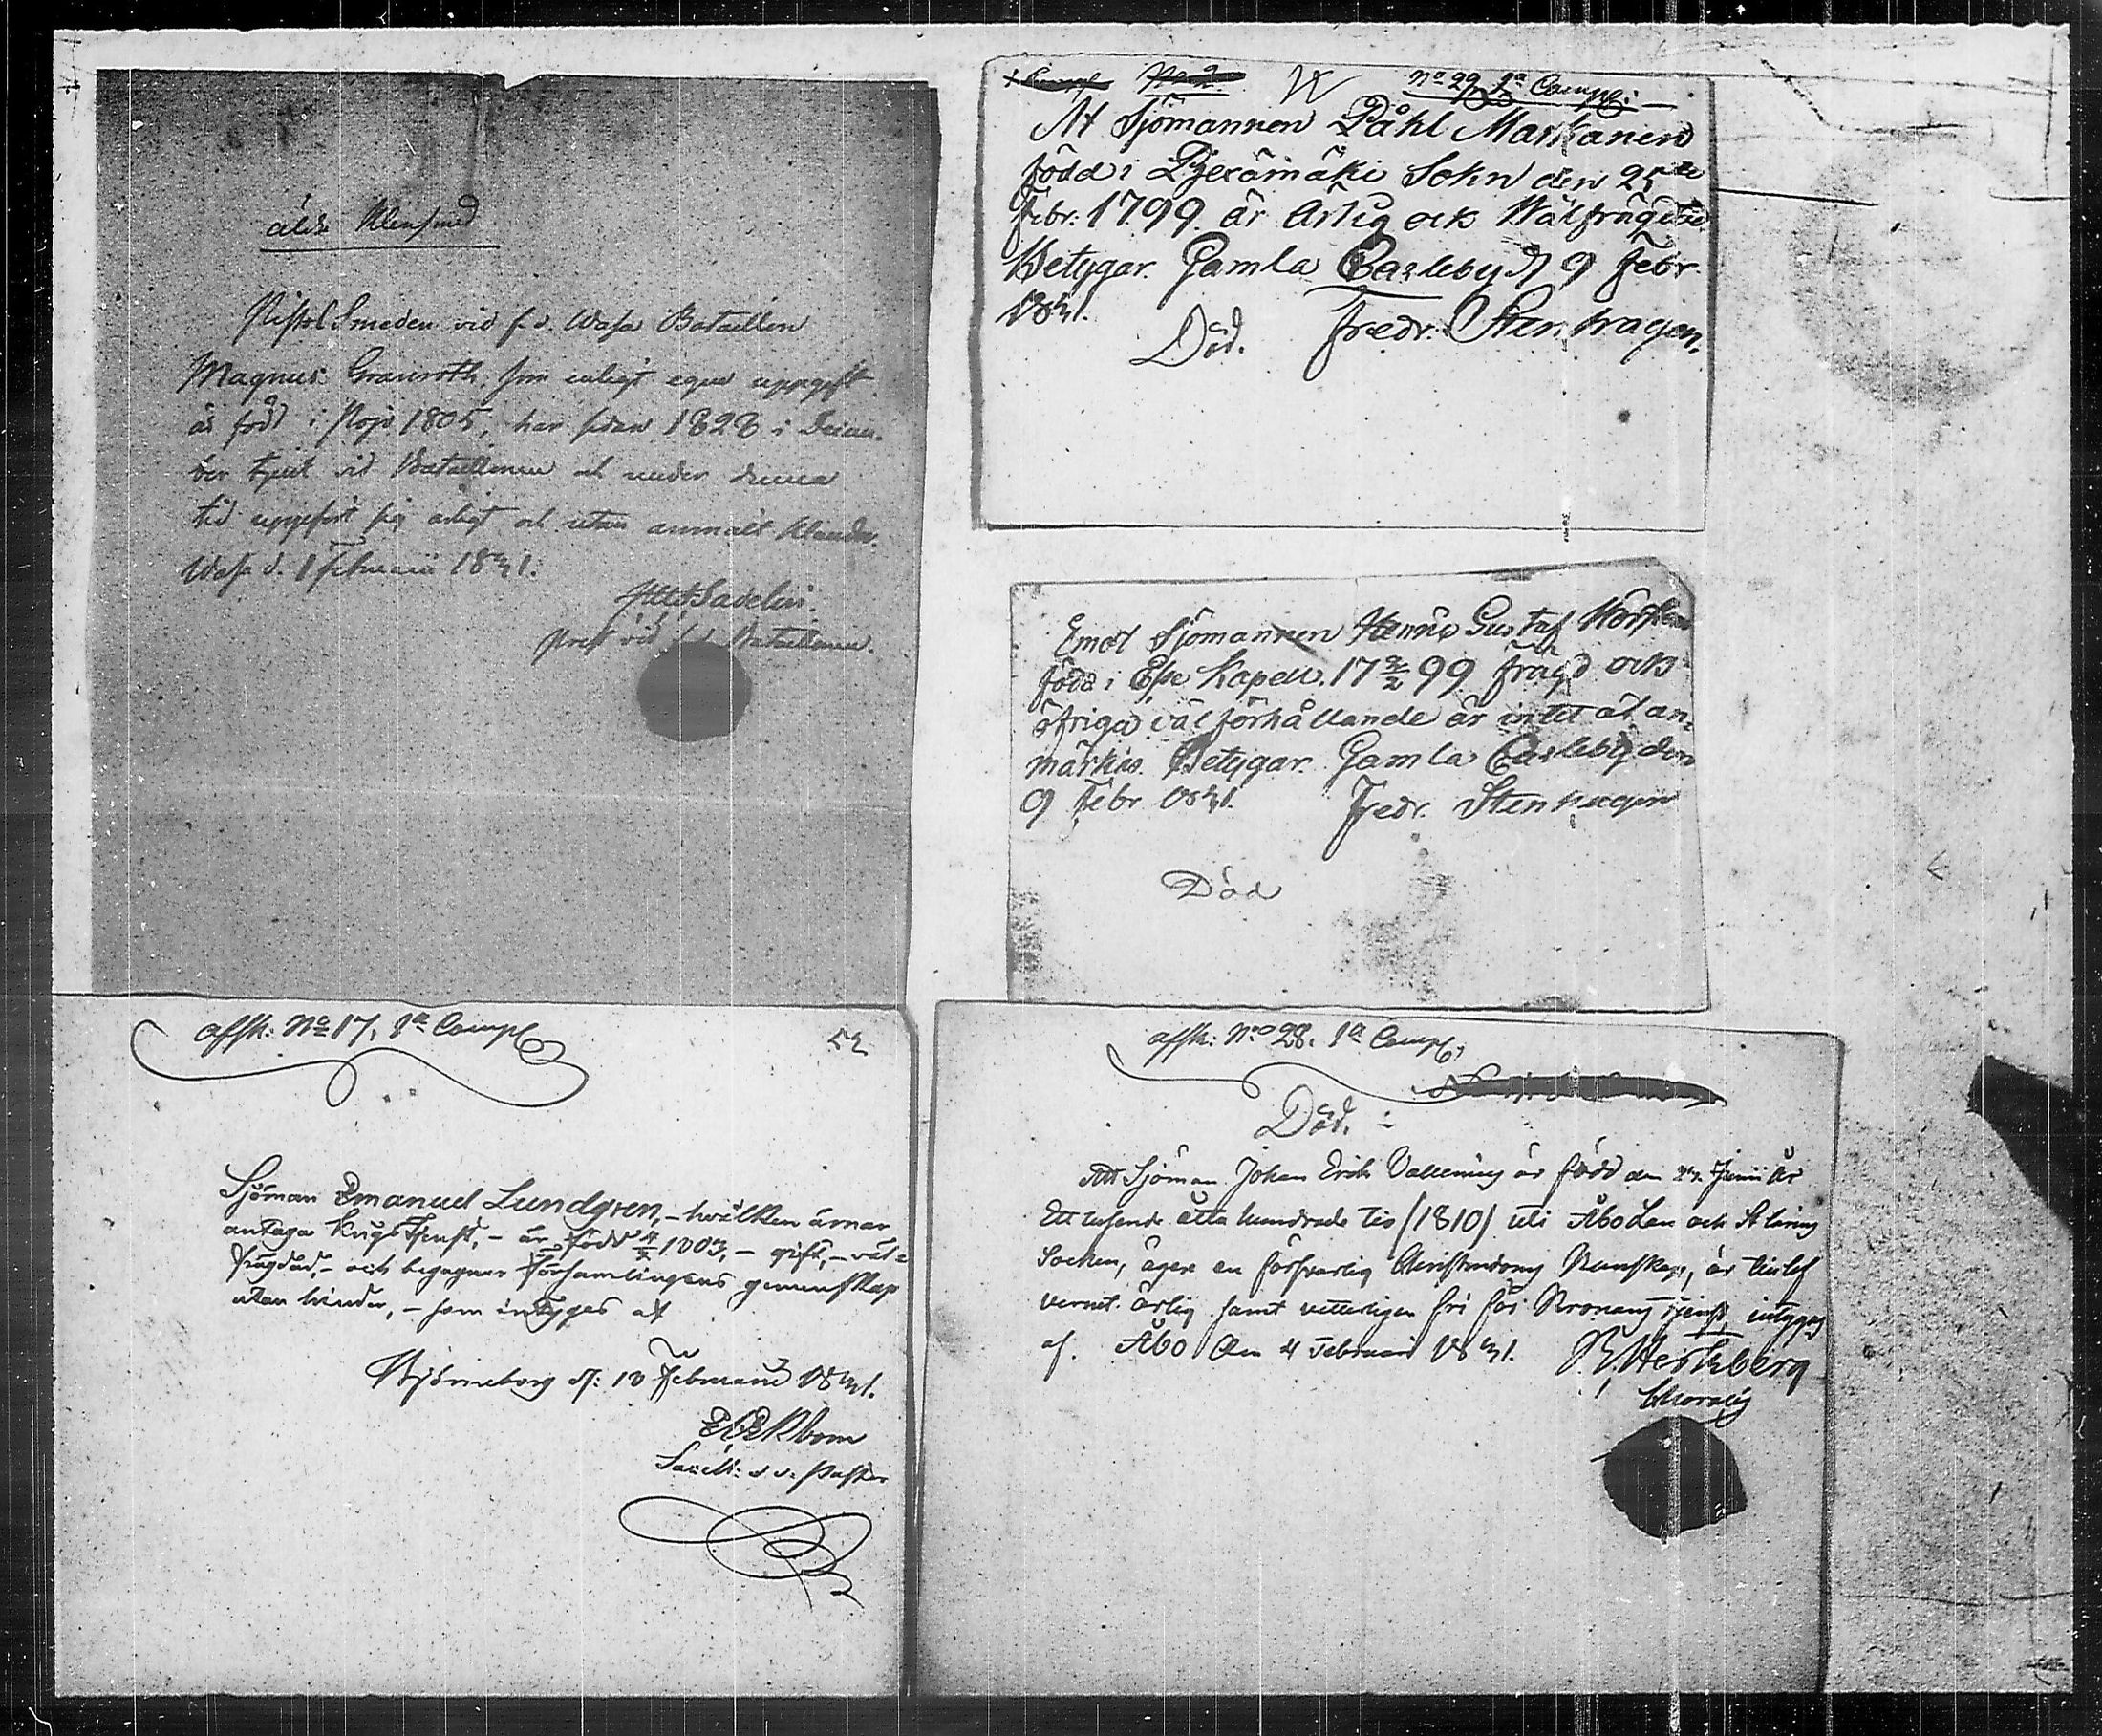 äldre Klensmed
PistolSmeden vid f. d. Wasa Bataillon
Magnus Granroth, som enligt egen uppgift
är född i Nojo 1805, har sedan 1828 i Decem-
ber tjent vid Bataillonen och under denna
tid uppfört sig ärligt och utan anmält klander.
Wasa d. 1 Februarii 1831.
Savelin.
Prest vid Bataillonen.
No 2. No 29, 1a Comp:
At Sjömannen Påhl Markanen
född i Pyerämäki Sokn den 25te
Febr: 1799. är ärlig ock Wälfrägdad.
Betygar. Gamla Carleby d 9 Febr.
1831. Fredr: Stenhagen.
Död.
Emot Sjömannen Gustaf
född i Esse Kapell. 17 2/2 99 frägd ock
öfriga välförhållande är intet at an-
märka. Betygar. Gamla Carleby den
9 Febr 1831. Fredr. Stenhagen
Död
affsk: No 17, 1a Comp
Sjöman Emanuel Lundgren, - hvilken ärnar
antaga KrigsTjenst, - är född 1803, - gift, - väl-
frägdad, - och begagnar Församlingens gemenskap
utan hinder, - som intygas af
Björneborg d: 10 Februarii 1831.
Ekbom
v. Pastor
affsk: No 28. 1a Comp.
Död.
Att Sjöman Johan Erik Vallening är född den Junii År
Ett tusende åtta hundrade tio (1810) uti Åbo Län och
Socken, äger en försvarlig Christendoms Kunskap, är till lef-
vernet ärlig samt vetterligen fri för Kronans tjenst, intygas
af. Åbo den 4 Februarii 1831. Hertzberg